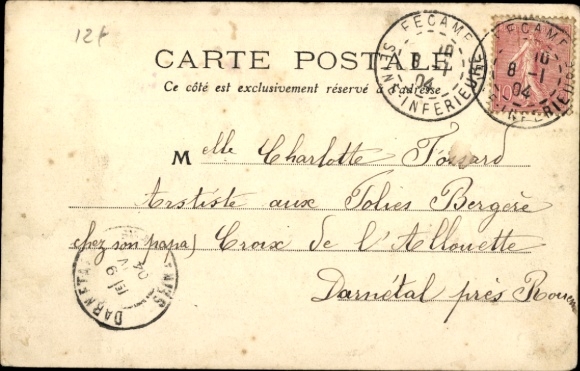 12f
CARTE POSTALE
Ce côté est exclusivement réservé à l'adresse
FECAMP
SNE-INFERIEURE
8 -1
04
FECAMP
8 -1
04
INFERIEURE
10
Melle Charlotte Fossard
Artiste aux Folies Bergère
chez son papa) Croix de l'Allouette
Darnétal près Rouen
DARNETAL
04